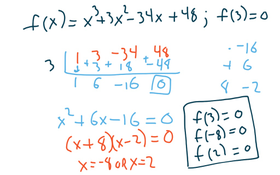 f(x) = x³+3x²-34x+48 ; f(3)=0
3 | 1 3 -34 48
↓ +3 +18 -48
1 6 -16 0
· -16
+ 6
8 -2
x²+6x-16=0
(x+8)(x-2)=0
x=-8 OR x=2
f(3)=0
f(-8)=0
f(2)=0